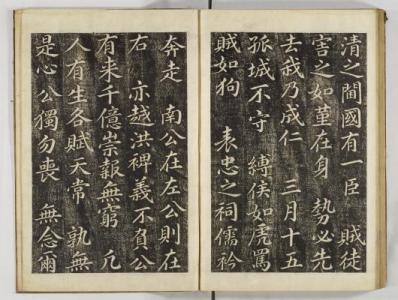 清之閫國有一臣 賊徒
害之如堇在身 勢必先
去我乃成仁 三月十五
孤城不守 縛侯如虎罵
賊如狗 表忠之祠儒衿
奔走 南公在左公則在
右 亦越洪裨義不負公
有来千億崇報無窮 凡
人有生各賦天常 孰無
是心 公獨勿喪 無念爾